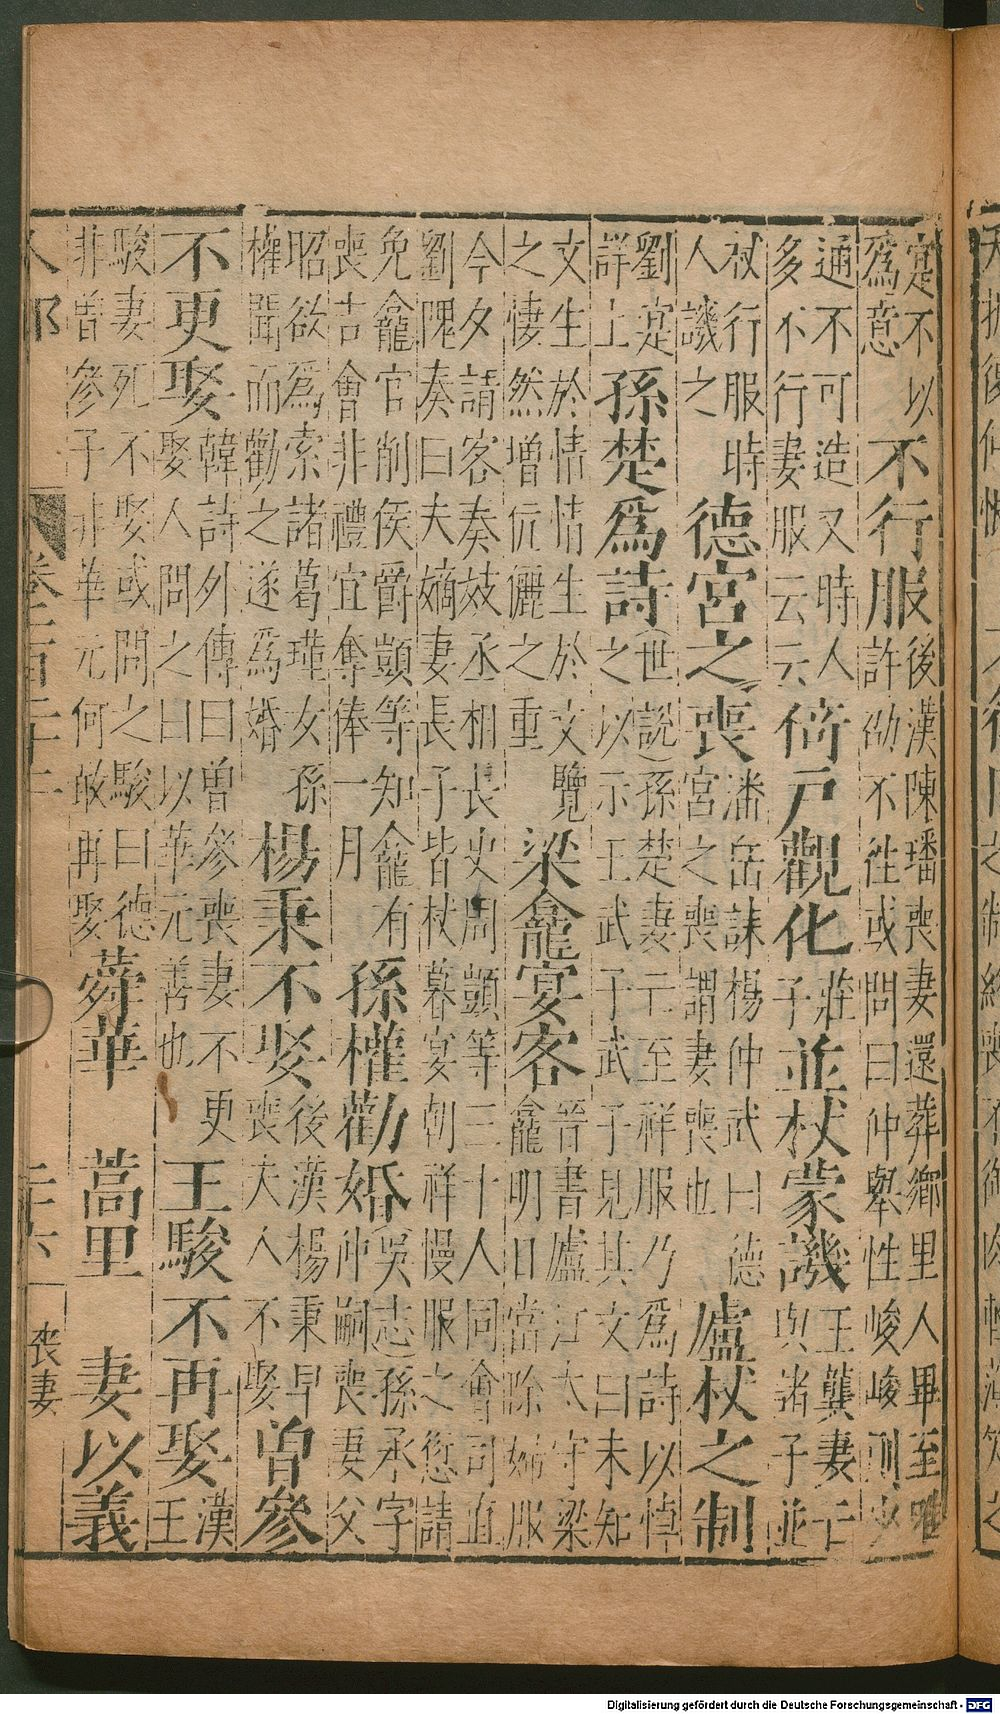 寔不以
為意
不行服
後漢陳璠喪妻還葬鄉里人畢至唯
許劭不往或問曰仲舉性峻峻則少
通不可造又時人
多不行妻服云云
倚戶觀化
莊
子
並杖蒙譏
王龔妻亡
與諸子並
杖行服時
人譏之
德宮之喪
潘岳誄楊仲武曰德
宮之喪謂妻喪也
廬杖之制
劉寔
詳上
孫楚為詩
(世說)孫楚妻亡至祥服乃為詩以悼
之以示王武子武子見其文曰未知
文生於情情生於文覽
之悽然增伉儷之重
梁龕宴客
晉書廬江太守梁
龕明日當除婦服
今夕請客奏妓丞相長史周顗等三十人同會司直
劉隗奏曰夫嫡妻長子皆杖暮宴朝祥慢服之愆請
免龕官削侯爵顗等知龕有
喪吉會非禮宜奪俸一月
孫權勸婚
(吳志)孫承字
仲嗣喪妻父
昭欲為索諸葛瑾女孫
權聞而勸之遂為婚
楊秉不娶
後漢楊秉早
喪夫人不娶
曾參
不更娶
韓詩外傳曰曾參喪妻不更
娶人問之曰以華元善也
王駿不再娶
漢
王
駿妻死不娶或問之駿曰德
非曾參子非華元何敢再娶
蕣華 蒿里 妻以義
人部
二十六
喪妻
Digitalisierung gefördert durch die Deutsche Forschungsgemeinschaft - DFG